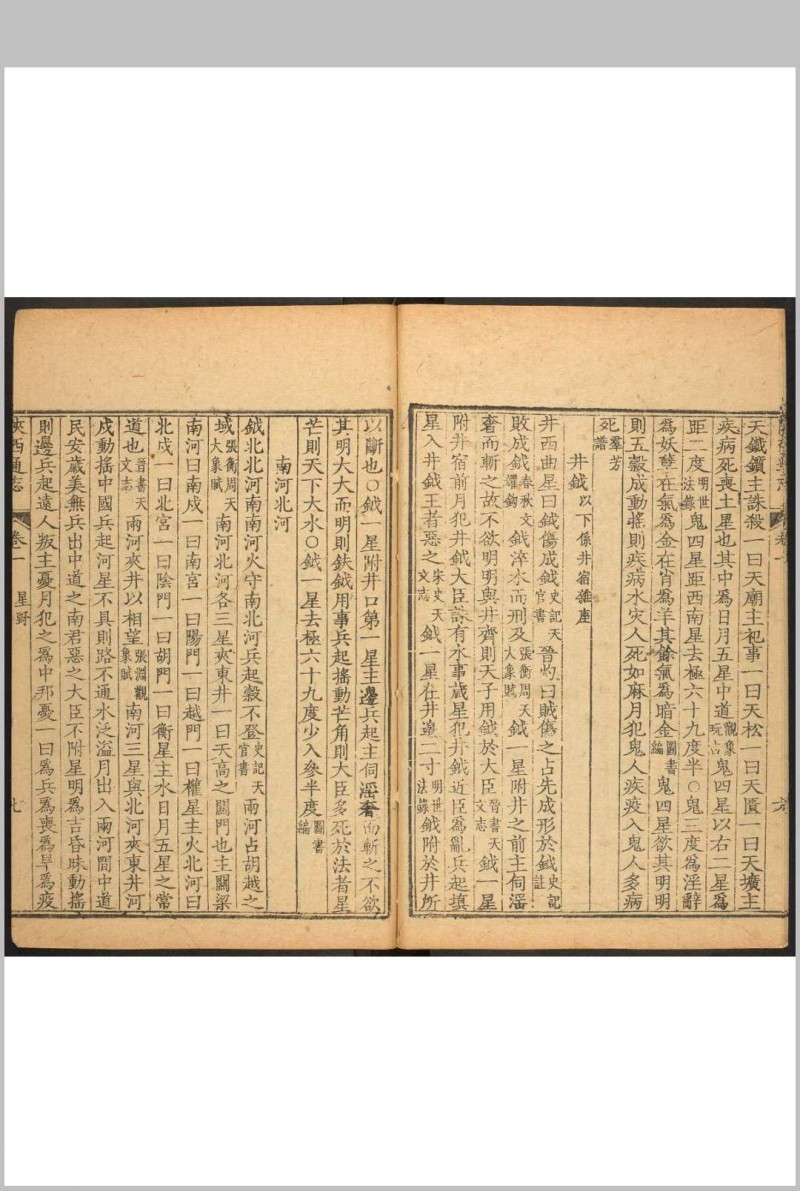 天鐵鑕主誅殺一曰天廟主祀事一曰天松一曰天匱一曰天壙主
疾病死喪土星也其中爲日月五星中道觀象玩占鬼四星以右二星爲
距二度明世法錄鬼四星距西南星去極六十九度半○鬼三度爲淫辭
爲妖孽在氣爲金在肖爲羊其餘氣爲暗金圖書編鬼四星欲其明明
則五穀成動搖則疾病水灾人死如麻月犯鬼人疾疫入鬼人多病
死羣芳譜
井鉞以下係井宿雜座
井西曲星曰鉞傷成鉞史記天官書晉灼曰賊傷之占先成形於鉞史記註
敗成鉞春秋文燿鉤鉞淬水而刑及張衡周天大象賦鉞一星附井之前主伺滛
奢而斬之故不欲明明與井齊則天子用鉞於大臣晉書天文志鉞一星
附井宿前月犯井鉞大臣誅有水事歲星犯井鉞近臣爲亂兵起填
星入井鉞王者惡之宋史天文志鉞一星在井邉二寸明世法錄鉞附於井所
以斷也○鉞一星附井口第一星主邊兵起主伺滛奢而斬之不欲
其明大大而明則鈇鉞用事兵起搖動芒角則大臣多死於法者星
芒則天下大水○鉞一星去極六十九度少入參半度圖書編
南河北河
鉞北北河南南河火守南北河兵起穀不登史記天官書兩河占胡越之
域張衡周天大象賦南河北河各三星夾東井一曰天高之關門也主關梁
南河曰南戍一曰南宮一曰陽門一曰越門一曰權星主火北河曰
北戍一曰北宮一曰陰門一曰胡門一曰衡星主水日月五星之常
道也晉書天文志兩河夾井以相望張淵觀象賦南河三星與北河夾東井河
戍動搖中國兵起河星不具則路不通水泛溢月出入兩河間中道
民安歲美無兵出中道之南君惡之大臣不附星明爲吉昏昧動搖
則邊兵起遠人叛主憂月犯之爲中邦憂一曰爲兵爲喪爲旱爲疫
陜西通志 卷一 星野 七